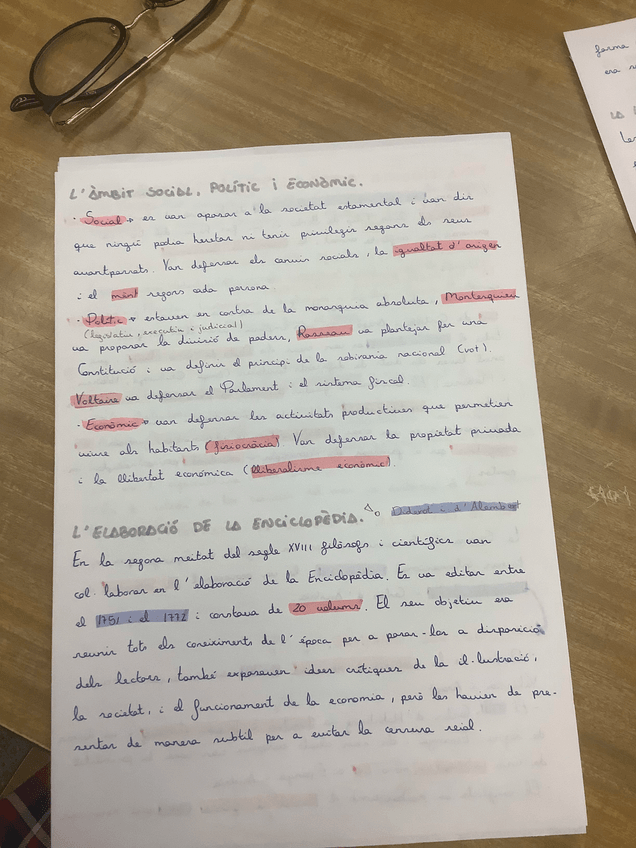 L'ÀMBIT SOCIAL, POLÍTIC I ECONÒMIC.
· Social → es van oposar a la societat estamental i van dir
que ningú podia heretar ni tenir privilegis segons els seus
avantpassats. Van defensar els canvis socials, la igualtat d'origen
i el mèrit segons cada persona.
· Polític → estaven en contra de la monarquia absoluta, Montesquieu
(legislatiu, executiu i judicial)
va proposar la divisió de poders, Rousseau va plantejar fer una
Constitució i va definir el principi de la sobirania nacional (vot).
Voltaire va defensar el Parlament i el sistema fiscal.
· Econòmic → van defensar les activitats productives que permetien
viure als habitants (fisiocràcia) Van defensar la propietat privada
i la llibertat econòmica (lliberalisme econòmic).
L'ELABORACIÓ DE LA ENCICLOPÈDIA. Diderot i d'Alembert
En la segona meitat del segle XVIII filòsofs i científics van
col·laborar en l'elaboració de la Enciclopèdia. Es va editar entre
el 1751 i el 1772 i constava de 20 volums. El seu objectiu era
reunir tots els coneixements de l'època per a posar-los a disposició
dels lectors, també exposaven idees crítiques de la il·lustració,
la societat, i el funcionament de la economia, però les havien de pre-
sentar de manera subtil per a evitar la censura reial.
forma
era
LA